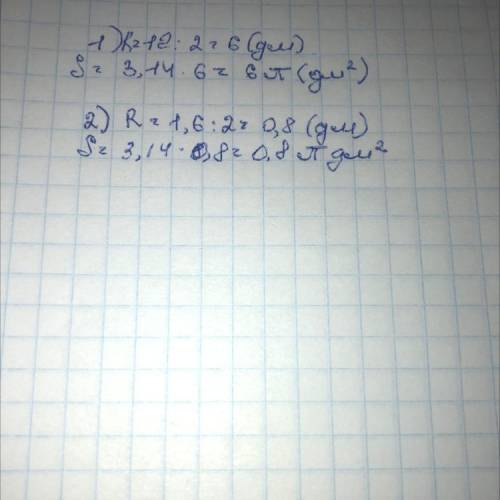 1) R=12:2=6 (дм)
S= 3,14·6= 6π (дм²)
2) R=1,6:2=0,8 (дм)
S= 3,14·0,8=0,8 π дм²